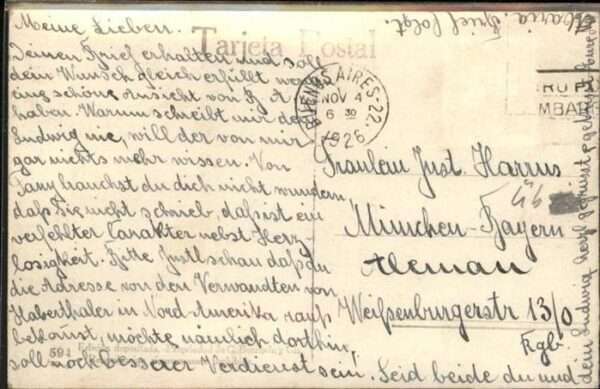 Meine Lieben.
Deinen Brief erhalten und soll
dein Wunsch gleich erfüllt
eine schöne Ansicht von B. A.
haben. Warum schreibt mir der
Ludwig nie, will der von mir
gar nichts mehr wissen. Von
Fany brauchst du dich nicht wundern
daß Sie nicht schrieb, daß ist ein
verfehlter Carakter nebst Herz-
losigkeit. Bitte Justl schau daß du
die Adresse von den Verwandten von
Haberthaler in Nord-Amerika rauß
bekomst, möchte nämlich dorthin,
soll noch besserer Verdienst sein. Seid beide du und
dem Ludwig herzl. gegrüßt & geküßt
Maria. Brief folgt.
Tarjeta Postal
BUENOS AIRES-22.
NOV 4
6 30
1926
MBAR
Fräulein Just. Harrus
München-Bayern
Aleman
Weißenburgerstr 13/0
594